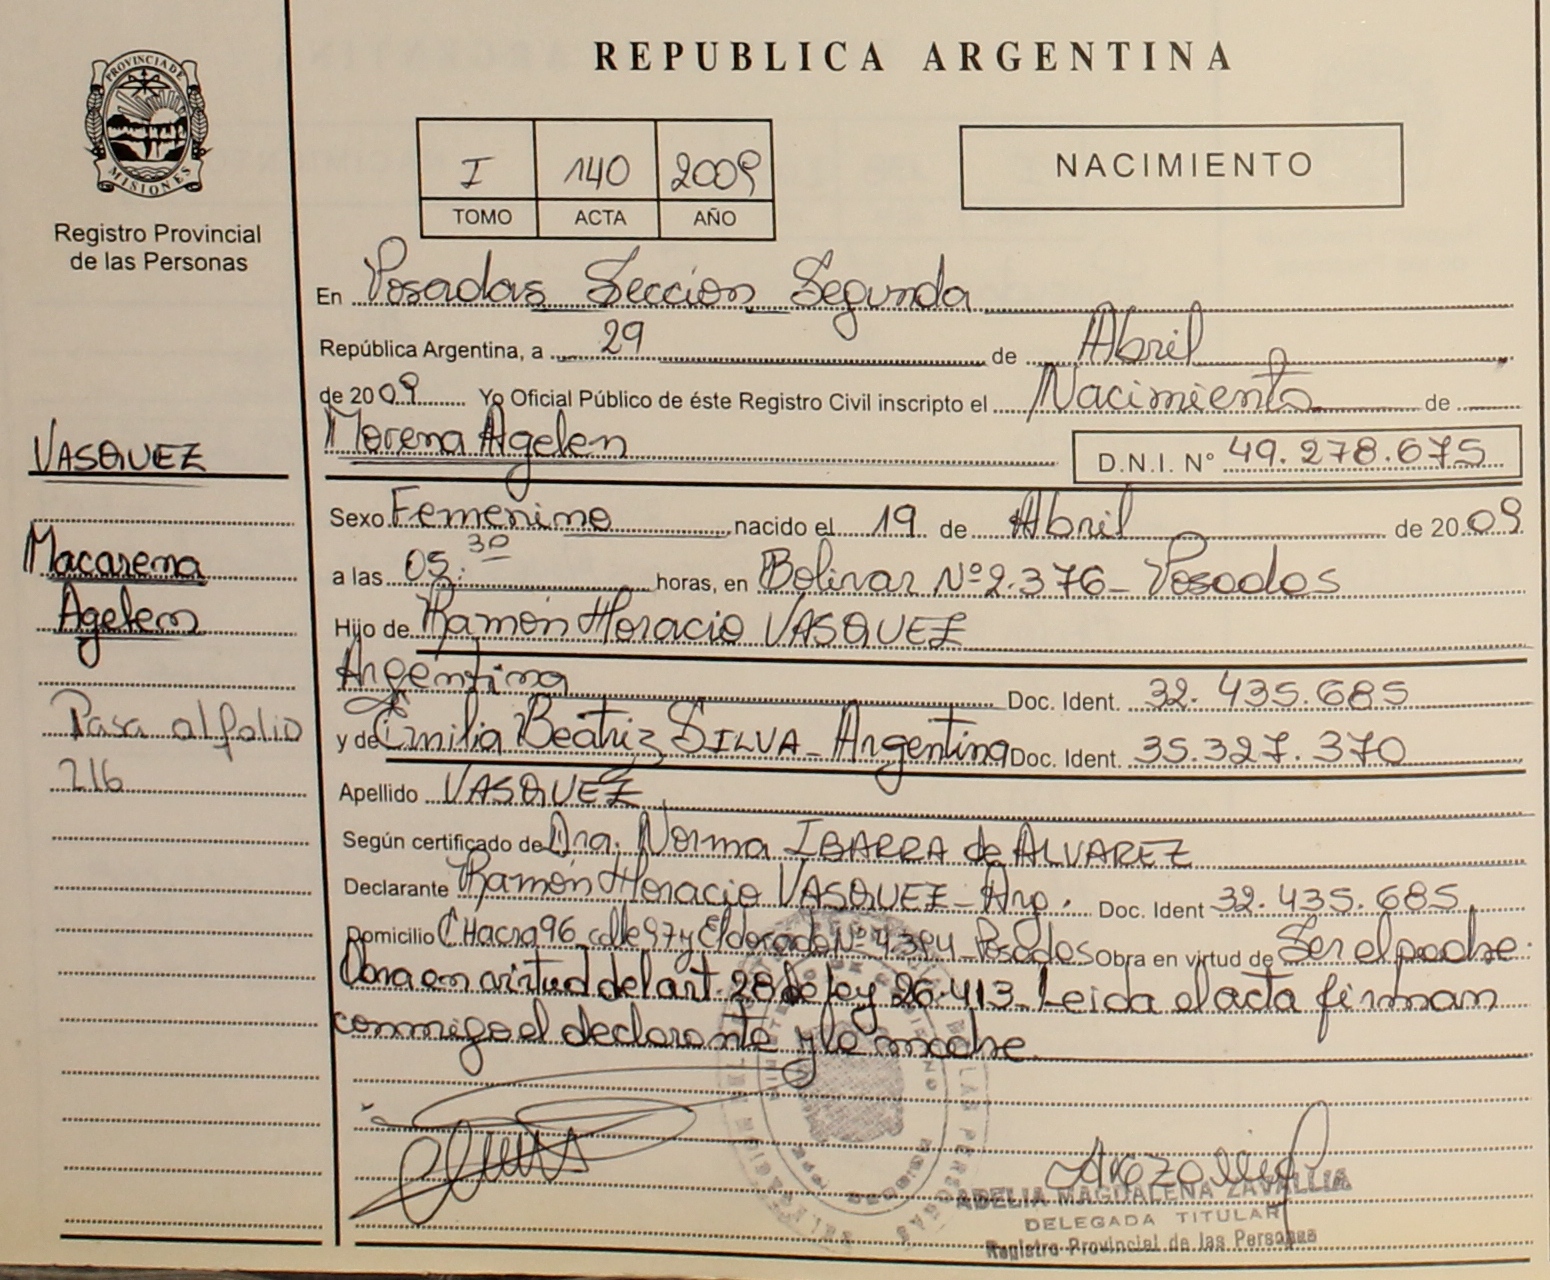 PROVINCIA DE
MISIONES
Registro Provincial
de las Personas
VASQUEZ
Macarena
Agelen
Pasa al folio
216
REPUBLICA ARGENTINA
I 140 2009
TOMO ACTA AÑO
NACIMIENTO
En Posadas Seccion Segunda
República Argentina, a 29 de Abril
de 2009 Yo Oficial Público de éste Registro Civil inscripto el Nacimiento de
Morena Agelen D.N.I. N° 49.278.675
Sexo Femenino nacido el 19 de Abril de 2009
a las 05:30 horas, en Bolivar Nº 2.376- Posadas
Hijo de Ramón Horacio VASQUEZ
Argentina Doc. Ident. 32.435.685
y de Emilia Beatriz SILVA- Argentina Doc. Ident. 35.327.370
Apellido VASQUEZ
Según certificado de Dra. Norma IBARRA de ALVAREZ
Declarante Ramón Horacio VASQUEZ- Arg. Doc. Ident 32.435.685
Domicilio CHacra 96 calle 97 y Eldorado Nº 4394 Posadas Obra en virtud de Ser el padre.
Obra en virtud del art. 28 de ley 26.413- Leida el acta firman
conmigo el declarante y la madre
ADELIA MAGDALENA ZAVALLIA
DELEGADA TITULAR
Registro Provincial de las Personas